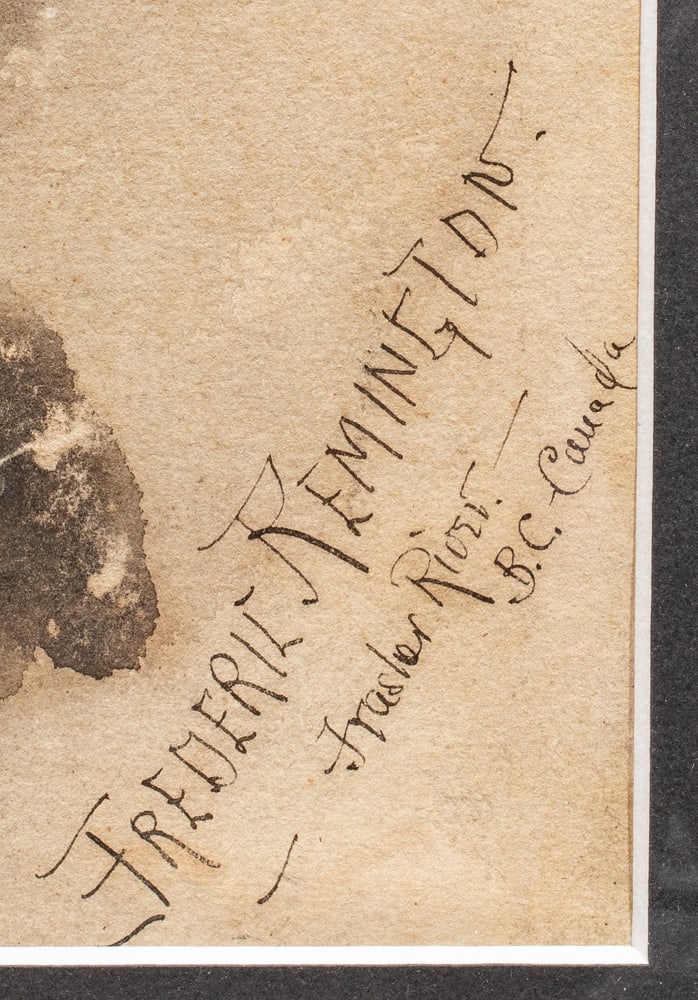 FREDERIC REMINGTON.
Frasler River. —
B.C. Canada